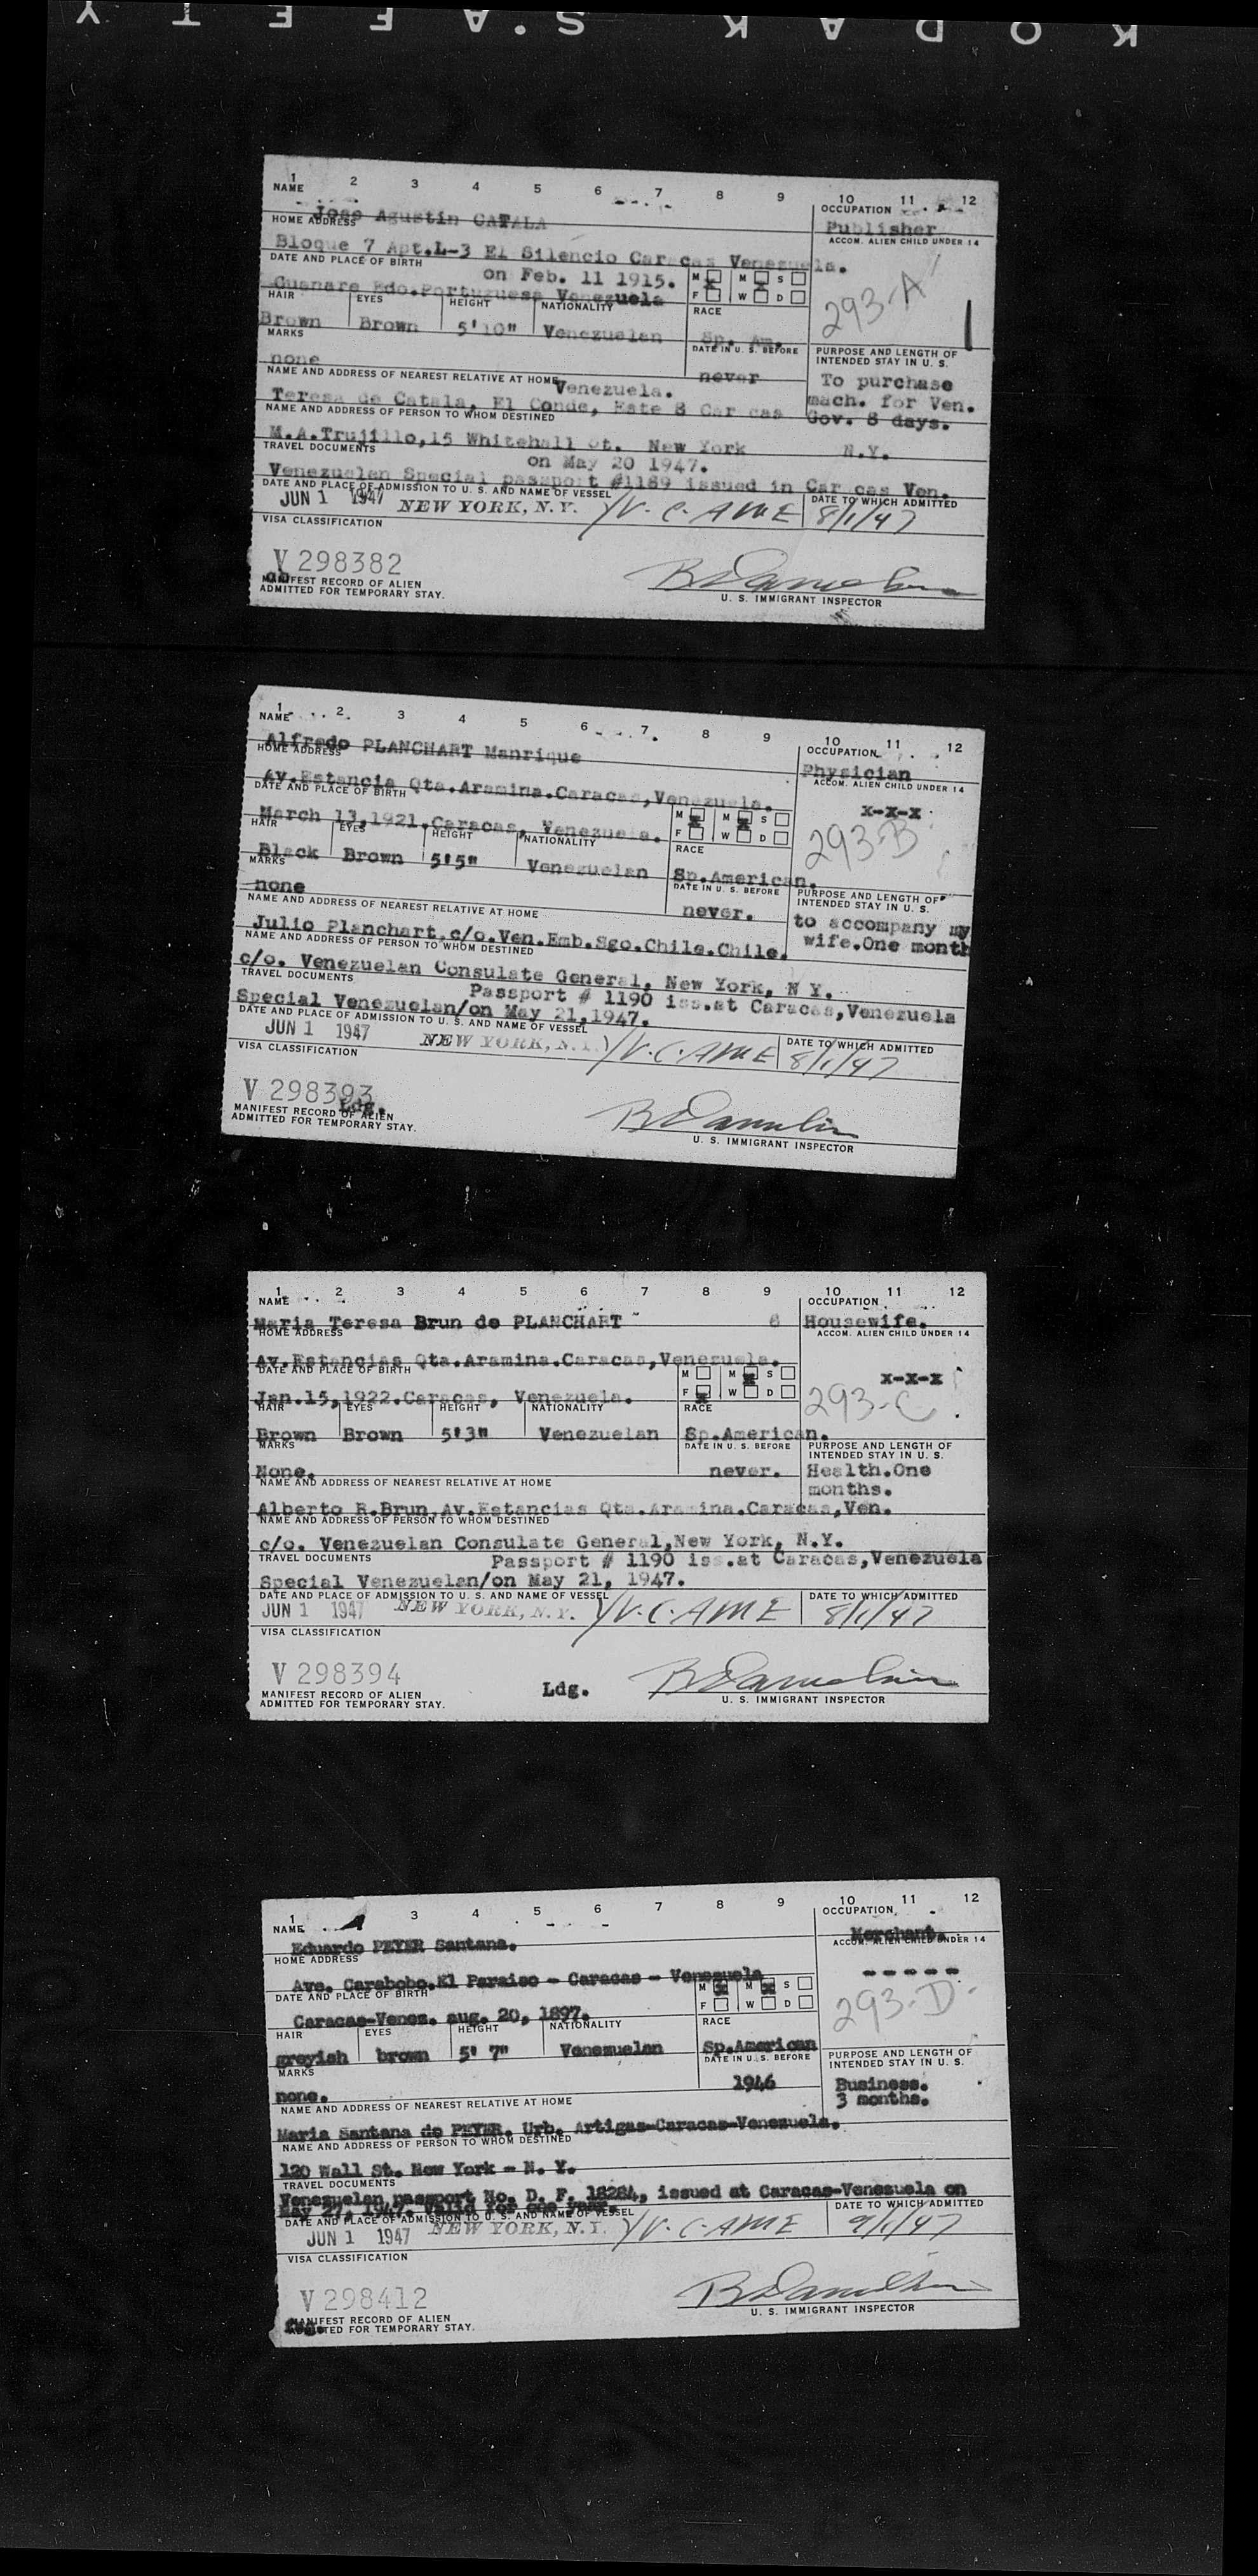 KODAK S.AFETY
1 2 3 4 5 6 7 8 9 10 11 12
NAME OCCUPATION
Jose Agustin CATALA Publisher
HOME ADDRESS ACCOM. ALIEN CHILD UNDER 14
Bloque 7 Apt.L-3 El Silencio Caracas Venezuela.
DATE AND PLACE OF BIRTH on Feb. 11 1915. M M S
Guanare Edo.Portuguesa Venezuela F W D 293-A
HAIR EYES HEIGHT NATIONALITY RACE
Brown Brown 5'10" Venezuelan Sp. Am.
MARKS DATE IN U. S. BEFORE PURPOSE AND LENGTH OF INTENDED STAY IN U. S.
none never To purchase
NAME AND ADDRESS OF NEAREST RELATIVE AT HOME Venezuela. mach. for Ven.
Teresa de Catala, El Conde, Este 8 Car cas Gov. 8 days.
NAME AND ADDRESS OF PERSON TO WHOM DESTINED
M.A.Trujillo,15 Whitehall st. New York N.Y.
TRAVEL DOCUMENTS on May 20 1947.
Venezuelan Special passport #1189 issued in Car cas Ven.
DATE AND PLACE OF ADMISSION TO U. S. AND NAME OF VESSEL DATE TO WHICH ADMITTED
JUN 1 1947 NEW YORK, N.Y. V.C.AME 8/1/47
VISA CLASSIFICATION
V 298382
MANIFEST RECORD OF ALIEN
ADMITTED FOR TEMPORARY STAY.
U. S. IMMIGRANT INSPECTOR
1 2 3 4 5 6 7 8 9 10 11 12
NAME OCCUPATION
Alfredo PLANCHART Manrique Physician
HOME ADDRESS ACCOM. ALIEN CHILD UNDER 14
Av.Estancia Qta.Aramina.Caracas,Venezuela. x-x-x
DATE AND PLACE OF BIRTH M M S
March 13,1921.Caracas, Venezuela. F W D 293-B
HAIR EYES HEIGHT NATIONALITY RACE
Black Brown 5'5" Venezuelan Sp.American.
MARKS DATE IN U. S. BEFORE PURPOSE AND LENGTH OF INTENDED STAY IN U. S.
none never. to accompany my
NAME AND ADDRESS OF NEAREST RELATIVE AT HOME wife.One month
Julio Planchart.c/o.Ven.Emb.Sgo.Chile.Chile.
NAME AND ADDRESS OF PERSON TO WHOM DESTINED
c/o. Venezuelan Consulate General, New York, N Y.
TRAVEL DOCUMENTS Passport # 1190 iss.at Caracas,Venezuela
Special Venezuelan/on May 21,1947.
DATE AND PLACE OF ADMISSION TO U. S. AND NAME OF VESSEL DATE TO WHICH ADMITTED
JUN 1 1947 NEW YORK, N.Y. V.C.AME 8/1/47
VISA CLASSIFICATION
V 298393
Ldg.
MANIFEST RECORD OF ALIEN
ADMITTED FOR TEMPORARY STAY.
U. S. IMMIGRANT INSPECTOR
1 2 3 4 5 6 7 8 9 10 11 12
NAME OCCUPATION
Maria Teresa Brun de PLANCHART 8 Housewife.
HOME ADDRESS ACCOM. ALIEN CHILD UNDER 14
Av.Estancias Qta.Aramina.Caracas,Venezuela. x-x-x
DATE AND PLACE OF BIRTH M M S
Jan.15,1922.Caracas, Venezuela. F W D 293-C
HAIR EYES HEIGHT NATIONALITY RACE
Brown Brown 5'3" Venezuelan Sp.American.
MARKS DATE IN U. S. BEFORE PURPOSE AND LENGTH OF INTENDED STAY IN U. S.
None. never. Health.One
NAME AND ADDRESS OF NEAREST RELATIVE AT HOME months.
Alberto R.Brun,Av.Estancias Qta.Aramina.Caracas,Ven.
NAME AND ADDRESS OF PERSON TO WHOM DESTINED
c/o. Venezuelan Consulate General,New York, N.Y.
TRAVEL DOCUMENTS Passport # 1190 iss.at Caracas,Venezuela
Special Venezuelan/on May 21, 1947.
DATE AND PLACE OF ADMISSION TO U. S. AND NAME OF VESSEL DATE TO WHICH ADMITTED
JUN 1 1947 NEW YORK, N.Y. V.C.AME 8/1/47
VISA CLASSIFICATION
V 298394
Ldg.
MANIFEST RECORD OF ALIEN
ADMITTED FOR TEMPORARY STAY.
U. S. IMMIGRANT INSPECTOR
1 3 4 5 6 7 8 9 10 11 12
NAME OCCUPATION
Eduardo PEYER Santana. Merchant.
HOME ADDRESS ACCOM. ALIEN CHILD UNDER 14
Ave. Carabobo.El Paraiso - Caracas - Venezuela -----
DATE AND PLACE OF BIRTH M M S
Caracas-Venez. aug. 20, 1897. F W D 293-D
HAIR EYES HEIGHT NATIONALITY RACE
greyish brown 5' 7" Venezuelan Sp.American
MARKS DATE IN U. S. BEFORE PURPOSE AND LENGTH OF INTENDED STAY IN U. S.
none. 1946 Business.
NAME AND ADDRESS OF NEAREST RELATIVE AT HOME 3 months.
Maria Santana de PEYER. Urb. Artigas-Caracas-Venezuela.
NAME AND ADDRESS OF PERSON TO WHOM DESTINED
120 Wall St. New York - N. Y.
TRAVEL DOCUMENTS
Venezuelan passport No. D. F. 18284, issued at Caracas-Venezuela on
May 27, 1947. Valid for one year.
DATE AND PLACE OF ADMISSION TO U. S. AND NAME OF VESSEL DATE TO WHICH ADMITTED
JUN 1 1947 NEW YORK, N.Y. V.C.AME 9/1/47
VISA CLASSIFICATION
V 298412
MANIFEST RECORD OF ALIEN
ADMITTED FOR TEMPORARY STAY.
U. S. IMMIGRANT INSPECTOR